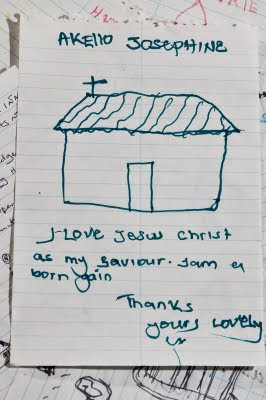 AKEllO JOSEPHINE
I-Love Jesus Christ
as my saviour. Iam a
born gain
Thanks
yours Lovely